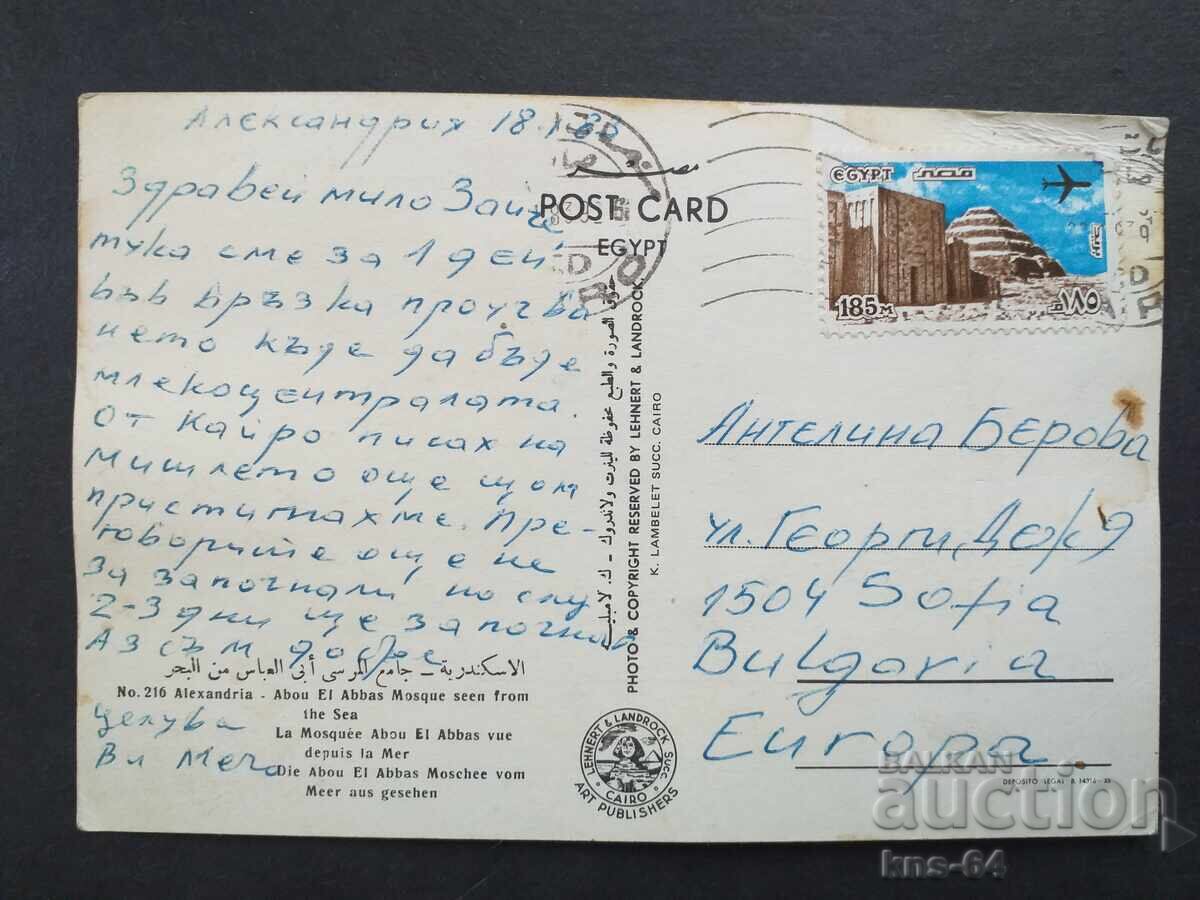 Александрия 18.I.80
Здравей мило Зайче
тука сме за 1 ден
във връзка проучва
нето къде да бъде
млекоцентралата.
От Кайро писах на
Мишлето още щом
пристигнахме. Пре-
говорите още не
са започнали но слу
2-3 дни ще започнат
Аз съм добре
الاسكندرية - جامع المرسى أبى العباس من البحر
No. 216 Alexandria - Abou El Abbas Mosque seen from
the Sea
La Mosquée Abou El Abbas vue
depuis la Mer
Die Abou El Abbas Moschee vom
Meer aus gesehen
Целува
Ви Меч
مصر
POST CARD
EGYPT
حقوق الصورة والطبع محفوظة للينرت ولاندروك - ك. لامبليه
PHOTO & COPYRIGHT RESERVED BY LEHNERT & LANDROCK
K. LAMBELET SUCC. CAIRO
LEHNERT & LANDROCK SUCC.
CAIRO
ART PUBLISHERS
EGYPT مصر
185M ١٨٥
Ангелина Берова
ул. Георги Деж 9
1504 Sofia
Bulgaria
Europa
DEPOSITO LEGAL B.
BALKAN
auction
kns-64